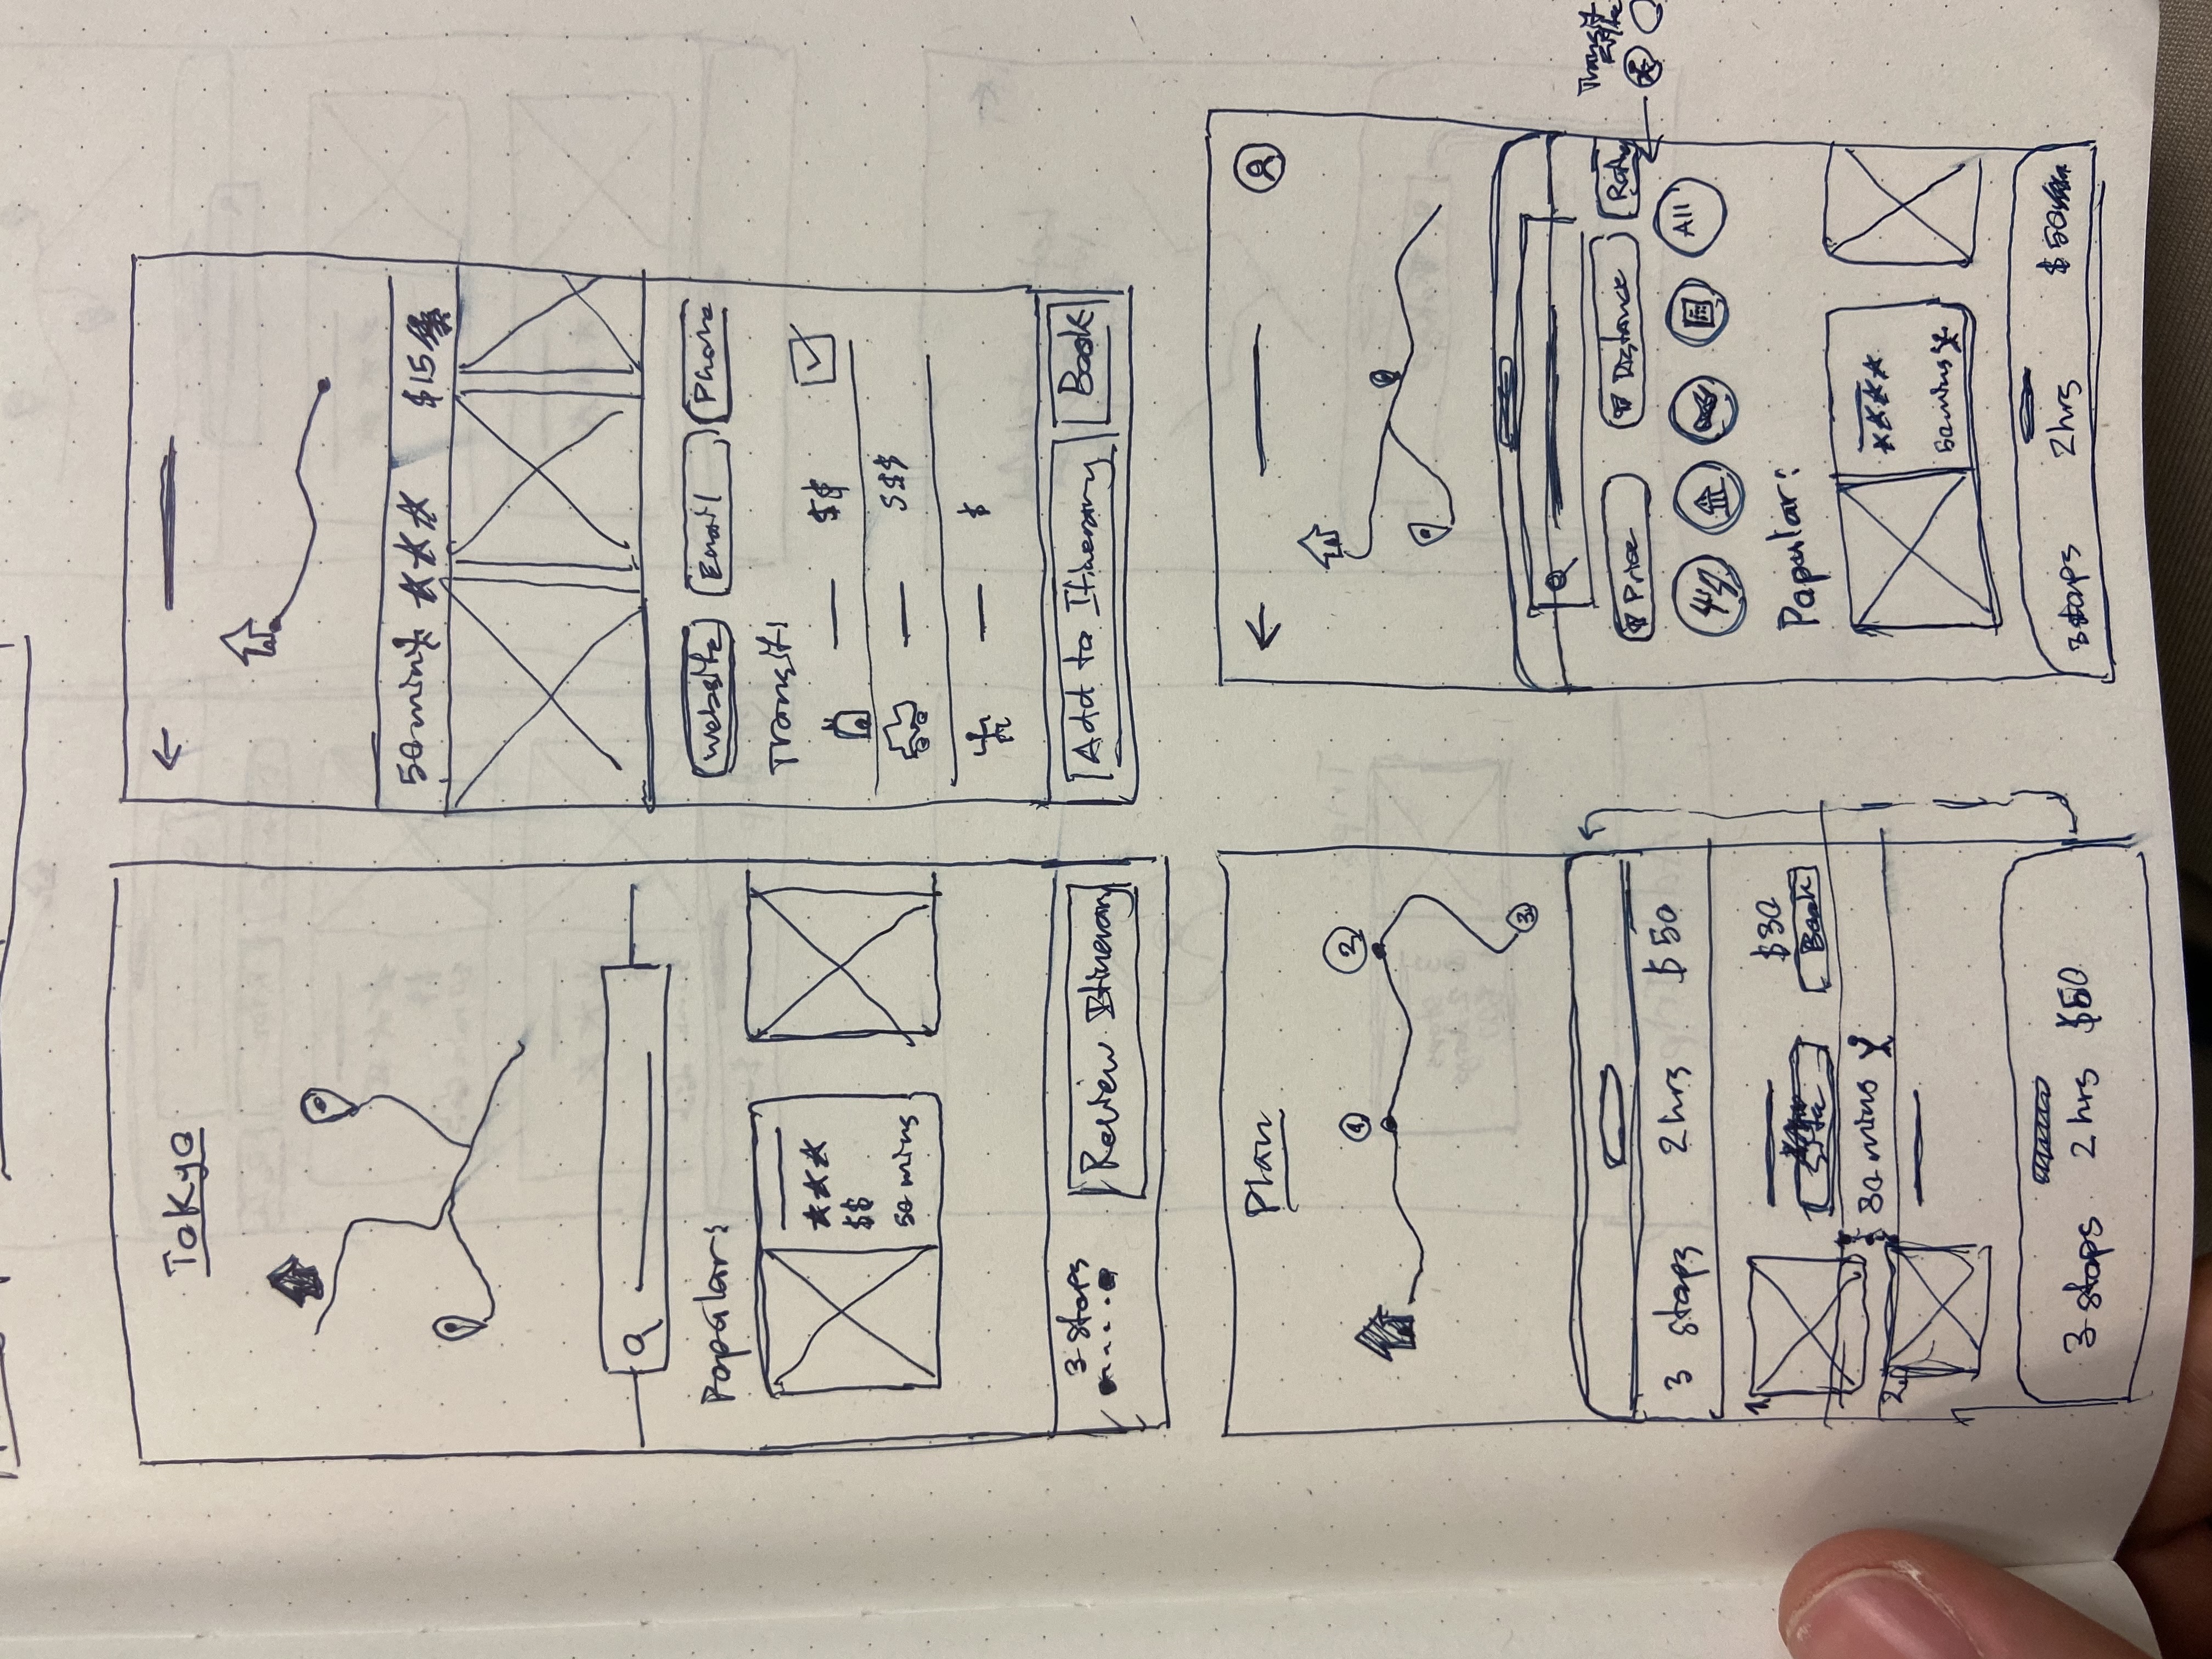 Tokyo
Popular:
$$
50 mins
3 stops
Review Itinerary
50 min
$15
Website
Email
Phone
Transit:
$$
$$$
$
Add to Itinerary
Book
Plan
1
2
3
3 stops 2 hrs $50
1.
$30
Site
Book
30 mins
2.
3 stops 2 hrs $50
Price
Distance
Rating
Transit
All
Popular:
50 mins
3 stops 2 hrs $50